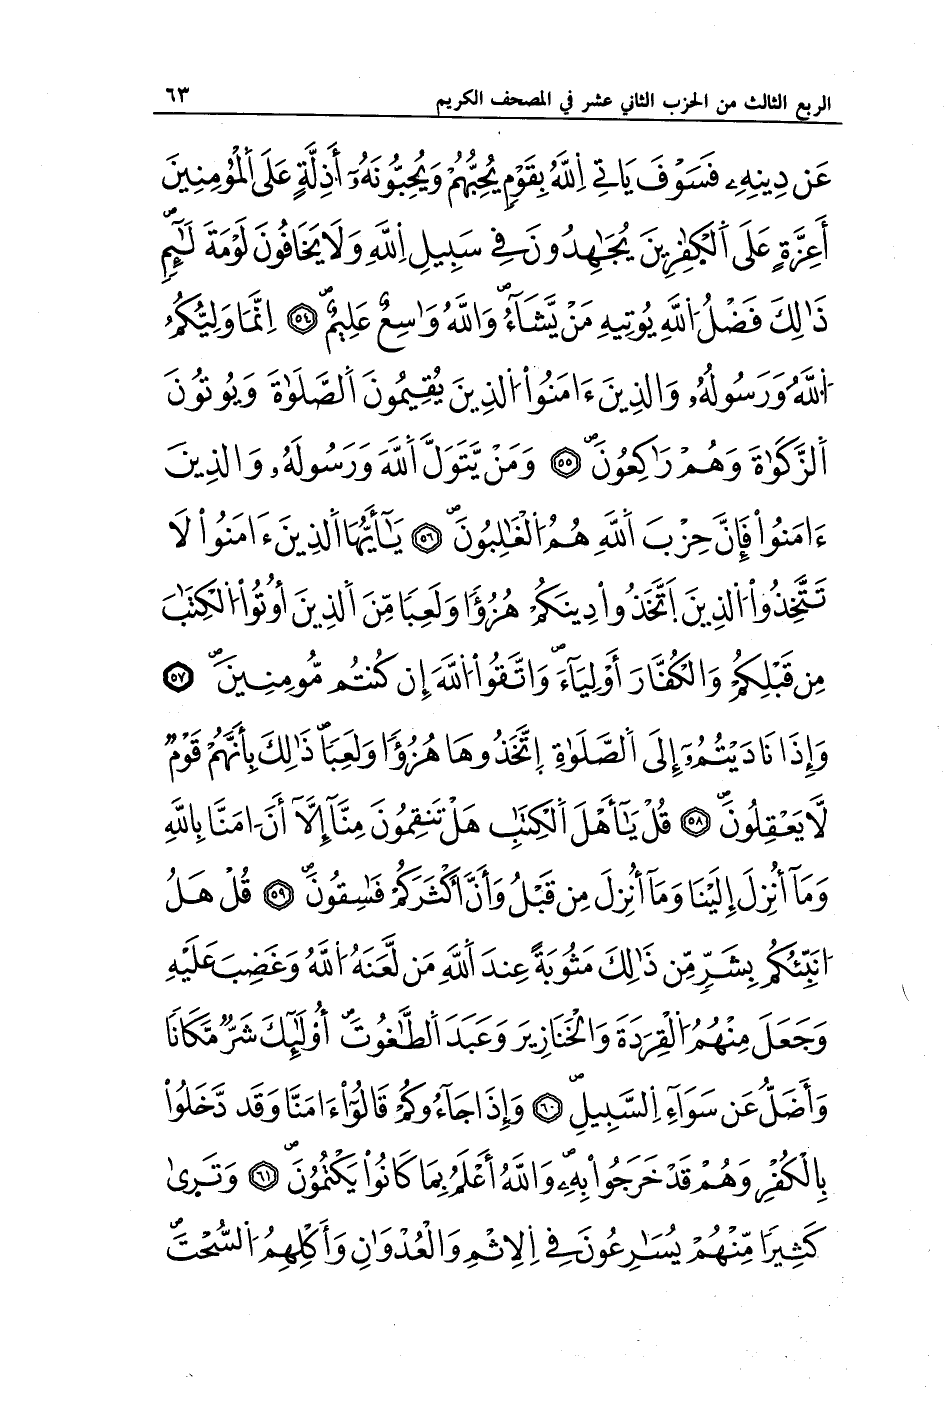 الربع الثالث من الحزب الثاني عشر في المصحف الكريم ٦٣
عَن دِينِهِۦ فَسَوْفَ يَاتِے اِ۬للَّهُ بِقَوْمٖ يُحِبُّهُمْ وَيُحِبُّونَهُۥٓ أَذِلَّةٍ عَلَى اَ۬لْمُومِنِينَ
أَعِزَّةٍ عَلَى اَ۬لْكٰ۪فِرِينَ يُجَٰهِدُونَ فِے سَبِيلِ اِ۬للَّهِ وَلَا يَخَافُونَ لَوْمَةَ لَآئِمٖۖ
ذَٰلِكَ فَضْلُ اُ۬للَّهِ يُوتِيهِ مَنْ يَّشَآءُۖ وَاللَّهُ وَٰسِعٌ عَلِيمٌۖ ٥٤ اِنَّمَا وَلِيُّكُمُ
اُ۬للَّهُ وَرَسُولُهُۥ وَالذِينَ ءَامَنُواْ اُ۬لذِينَ يُقِيمُونَ اَ۬لصَّلَوٰةَ وَيُوتُونَ
اَ۬لزَّكَوٰةَ وَهُمْ رَٰكِعُونَۖ ٥٥ وَمَنْ يَّتَوَلَّ اَ۬للَّهَ وَرَسُولَهُۥ وَالذِينَ
ءَامَنُواْ فَإِنَّ حِزْبَ اَ۬للَّهِ هُمُ اُ۬لْغَٰلِبُونَۖ ٥٦ يَٰٓأَيُّهَا اَ۬لذِينَ ءَامَنُواْ لَا
تَتَّخِذُواْ اُ۬لذِينَ اَ۪تَّخَذُواْ دِينَكُمْ هُزُؤاٗ وَلَعِباٗ مِّنَ اَ۬لذِينَ أُوتُواْ اُ۬لْكِتَٰبَ
مِن قَبْلِكُمْ وَالْكُفَّارَ أَوْلِيَآءَۖ وَاتَّقُواْ اُ۬للَّهَ إِن كُنتُم مُّومِنِينَۖ ٥٧
وَإِذَا نَادَيْتُمُۥٓ إِلَى اَ۬لصَّلَوٰةِ اِ۪تَّخَذُوهَا هُزُؤاٗ وَلَعِباٗۖ ذَٰلِكَ بِأَنَّهُمْ قَوْمٞ
لَّا يَعْقِلُونَۖ ٥٨ قُلْ يَٰٓأَهْلَ اَ۬لْكِتَٰبِ هَلْ تَنقِمُونَ مِنَّآ إِلَّآ أَنَ اٰمَنَّا بِاللَّهِ
وَمَآ أُنزِلَ إِلَيْنَا وَمَآ أُنزِلَ مِن قَبْلُ وَأَنَّ أَكْثَرَكُمْ فَٰسِقُونَۖ ٥٩ قُلْ هَلُ
ا۟نَبِّئُكُم بِشَرّٖ مِّن ذَٰلِكَ مَثُوبَةً عِندَ اَ۬للَّهِ مَن لَّعَنَهُ اُ۬للَّهُ وَغَضِبَ عَلَيْهِ
وَجَعَلَ مِنْهُمُ اُ۬لْقِرَدَةَ وَالْخَنَازِيرَ وَعَبَدَ اَ۬لطَّٰغُوتَۖ أُوْلَٰٓئِكَ شَرّٞ مَّكَاناٗ
وَأَضَلُّ عَن سَوَآءِ اِ۬لسَّبِيلِۖ ٦٠ وَإِذَا جَآءُوكُمْ قَالُوٓاْ ءَامَنَّا وَقَد دَّخَلُواْ
بِالْكُفْرِ وَهُمْ قَدْ خَرَجُواْ بِهِۦۖ وَاللَّهُ أَعْلَمُ بِمَا كَانُواْ يَكْتُمُونَۖ ٦١ وَتَر۪يٰ
كَثِيراٗ مِّنْهُمْ يُسَٰرِعُونَ فِے اِ۬لِاثْمِ وَالْعُدْوَٰنِ وَأَكْلِهِمُ اُ۬لسُّحْتَۖ